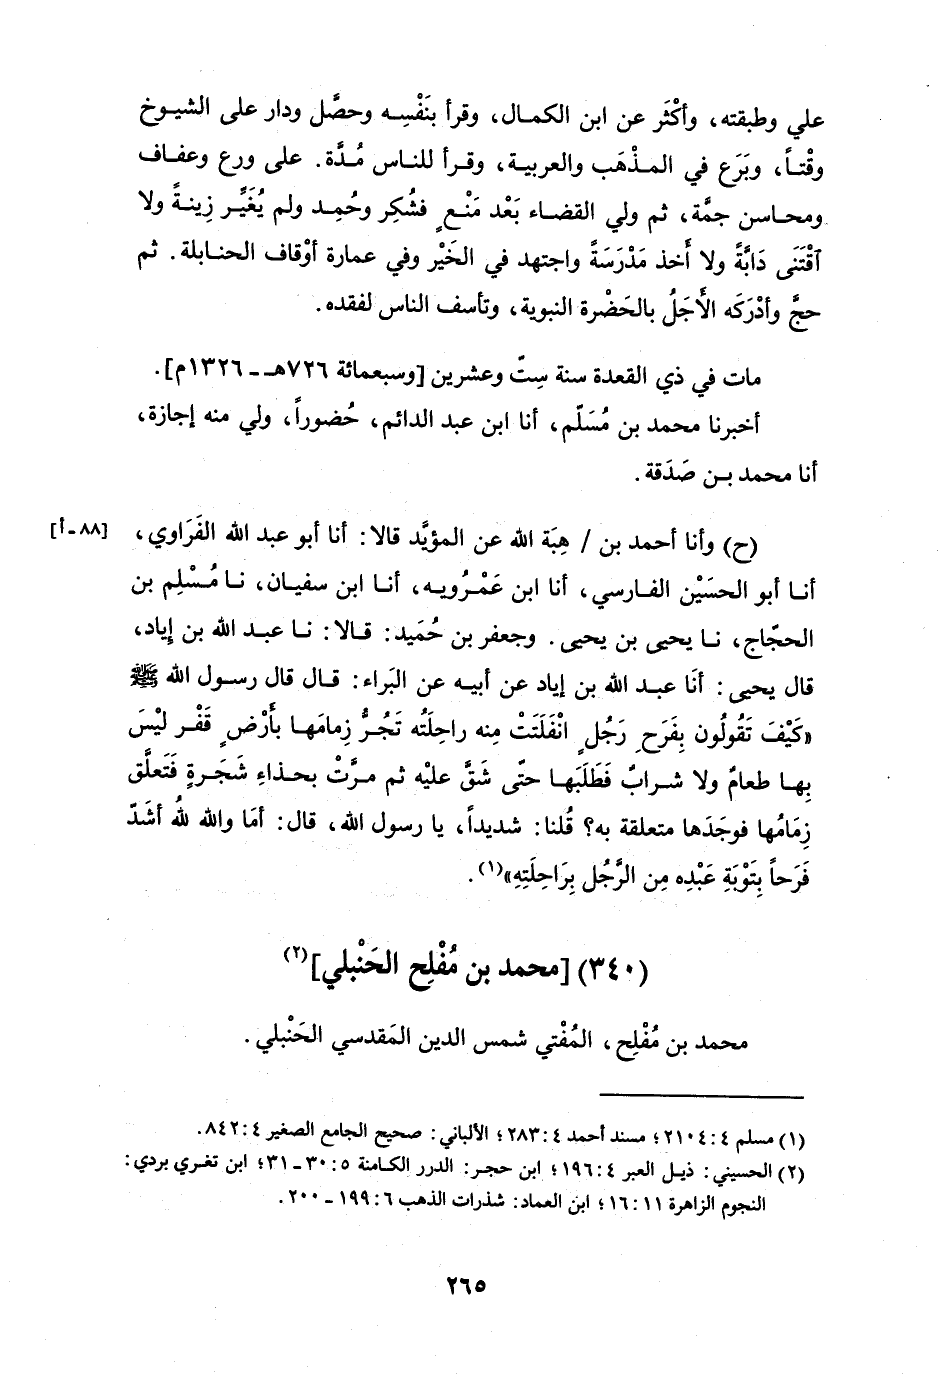 علي وطبقته، وأكْثَر عن ابن الكمال، وقرأ بنَفْسِه وحصَّل ودار على الشيوخ
وقْتاً، وبَرَع في المذْهَب والعربية، وقرأ للناس مُدَّة. على ورع وعفاف
ومحاسن جمَّة، ثم ولي القضاء بَعْد مَنْعٍ فشُكِر وحُمِد ولم يُغَيِّر زِينةً ولا
ٱقْتَنَى دَابَّةً ولا أَخذ مَدْرَسَةً واجتهد في الخَيْر وفي عمارة أوْقاف الحنابلة. ثم
حجَّ وأدْرَكَه الأَجَلُ بالحَضْرة النبوية، وتأسف الناس لفقده.
مات في ذي القعدة سنة سِتّ وعشرين [وسبعمائة ٧٢٦هـ - ١٣٢٦م].
أخبرنا محمد بن مُسَلّم، أنا ابن عبد الدائم، حُضوراً، ولي منه إجازة،
أنا محمد بن صَدَقة.
(ح) وأنا أحمد بن / هِبَة الله عن المؤيَّد قالا: أنا أبو عبد الله الفَرَاوي، [٨٨-أ]
أنا أبو الحسَيْن الفارسي، أنا ابن عَمْرُويه، أنا ابن سفيان، نا مُسْلِم بن
الحجّاج، نا يحيى بن يحيى. وجعفر بن حُمَيد: قالا: نا عبد الله بن إياد،
قال يحيى: أنَا عبد الله بن إياد عن أبيه عن البَراء: قال قال رسول الله ﷺ
«كَيْفَ تَقُولُون بِفَرَحِ رَجُلٍ انْفَلَتَتْ مِنه راحِلَتُه تَجُرُّ زِمامَها بأَرْضٍ قَفْر لَيْسَ
بِها طعامٌ ولا شرابٌ فَطَلَبَها حتّى شَقَّ عليْه ثم مرَّتْ بحذاءِ شَجَرةٍ فَتَعلَّق
زِمَامُها فوجَدَها متعلقة به؟ قُلنا: شديداً، يا رسول الله، قال: أمَا والله للهُ أشَدّ
فَرَحاً بِتَوْبَةِ عَبْدِه مِن الرَّجُل بِرَاحِلَتِهِ»(١).
(٣٤٠) [محمد بن مُفْلِح الحَنْبلي](٢)
محمد بن مُفْلِح، المُفْتي شمس الدين المَقدسي الحَنْبلي.
(١) مسلم ٤: ٢١٠٤؛ مسند أحمد ٤: ٢٨٣؛ الألباني: صحيح الجامع الصغير ٤: ٨٤٢.
(٢) الحسيني: ذيل العبر ٤: ١٩٦؛ ابن حجر: الدرر الكامنة ٥: ٣٠ - ٣١؛ ابن تغري بردي:
النجوم الزاهرة ١١: ١٦؛ ابن العماد: شذرات الذهب ٦: ١٩٩ - ٢٠٠.
٢٦٥